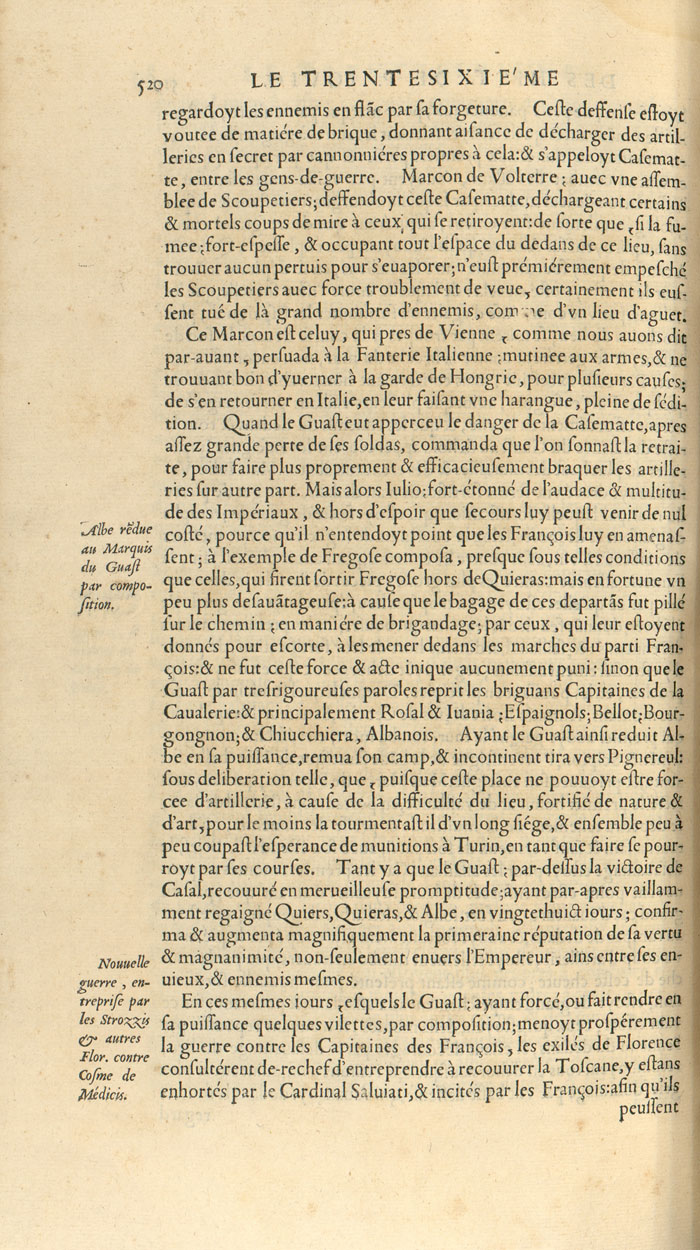 520
LE TRENTESIXIE'ME
regardoyt les ennemis en flãc par ſa forgeture. Ceſte deffenſe eſtoyt
voutee de matiére de brique, donnant aiſance de décharger des artil-
leries en ſecret par cannonniéres propres à cela:& s'appeloyt Caſemat-
te, entre les gens-de-guerre. Marcon de Volterre ; auec vne aſſem-
blee de Scoupetiers; deffendoyt ceſte Caſematte, déchargeant certains
& mortels coups de mire à ceux, qui ſe retiroyent: de ſorte que , ſi la fu-
mee ; fort-eſpeſſe , & occupant tout l'eſpace du dedans de ce lieu, ſans
trouuer aucun pertuis pour s'euaporer; n'euſt prémiérement empeſché
les Scoupetiers auec force troublement de veue, certainement ils euſ-
ſent tué de là grand nombre d'ennemis, comme d'vn lieu d'aguet.
Ce Marcon eſt celuy, qui pres de Vienne , comme nous auons dit
par-auant , perſuada à la Fanterie Italienne ; mutinee aux armes, & ne
trouuant bon d'yuerner à la garde de Hongrie, pour pluſieurs cauſes;
de s'en retourner en Italie, en leur faiſant vne harangue, pleine de ſédi-
tion. Quand le Guaſt eut apperceu le danger de la Caſematte, apres
aſſez grande perte de ſes ſoldas, commanda que l'on ſonnaſt la retrai-
te, pour faire plus proprement & efficacieuſement braquer les artille-
ries ſur autre part. Mais alors Iulio; fort-étonné de l'audace & multitu-
de des Impériaux , & hors d'eſpoir que ſecours luy peuſt venir de nul
coſté, pource qu'il n'entendoyt point que les François luy en amenaſ-
ſent ; à l'exemple de Fregoſe compoſa, preſque ſous telles conditions
que celles, qui firent ſortir Fregoſe hors de Quieras: mais en fortune vn
peu plus deſauãtageuſe: à cauſe que le bagage de ces departãs fut pillé
ſur le chemin ; en maniére de brigandage; par ceux , qui leur eſtoyent
donnés pour eſcorte, à les mener dedans les marches du parti Fran-
çois:& ne fut ceſte force & acte inique aucunement puni : ſinon que le
Guaſt par treſrigoureuſes paroles reprit les briguans Capitaines de la
Caualerie:& principalement Roſal & Iuania ; Eſpaignols; Bellot; Bour-
gongnon;& Chiucchiera, Albanois. Ayant le Guaſt ainſi reduit Al-
be en ſa puiſſance, remua ſon camp, & incontinent tira vers Pignereul:
ſous deliberation telle, que , puiſque ceſte place ne pouuoyt eſtre for-
cee d'artillerie, à cauſe de la difficulté du lieu, fortifié de nature &
d'art, pour le moins la tourmentaſt il d'vn long ſiége, & enſemble peu à
peu coupaſt l'eſperance de munitions à Turin, en tant que faire ſe pour-
royt par ſes courſes. Tant y a que le Guaſt ; par-deſſus la victoire de
Caſal, recouuré en merueilleuſe promptitude; ayant par-apres vaillam-
ment regaigné Quiers, Quieras, & Albe, en vingtethuict iours ; confir-
ma & augmenta magnifiquement la primeraine réputation de ſa vertu
& magnanimité, non-ſeulement enuers l'Empereur, ains entre ſes en-
uieux, & ennemis meſmes.
En ces meſmes iours , eſquels le Guaſt ; ayant forcé, ou fait rendre en
ſa puiſſance quelques vilettes, par compoſition; menoyt proſpérement
la guerre contre les Capitaines des François, les exilés de Florence
conſultérent de-rechef d'entreprendre à recouurer la Toſcane, y eſtans
enhortés par le Cardinal Saluiati, & incités par les François: afin qu'ils
peuſſent
Albe rẽdue
au Marquis
du Guaſt
par compo-
ſition.
Nouuelle
guerre , en-
treprise par
les Strozzis
& autres
Flor. contre
Coſme de
Médicis.